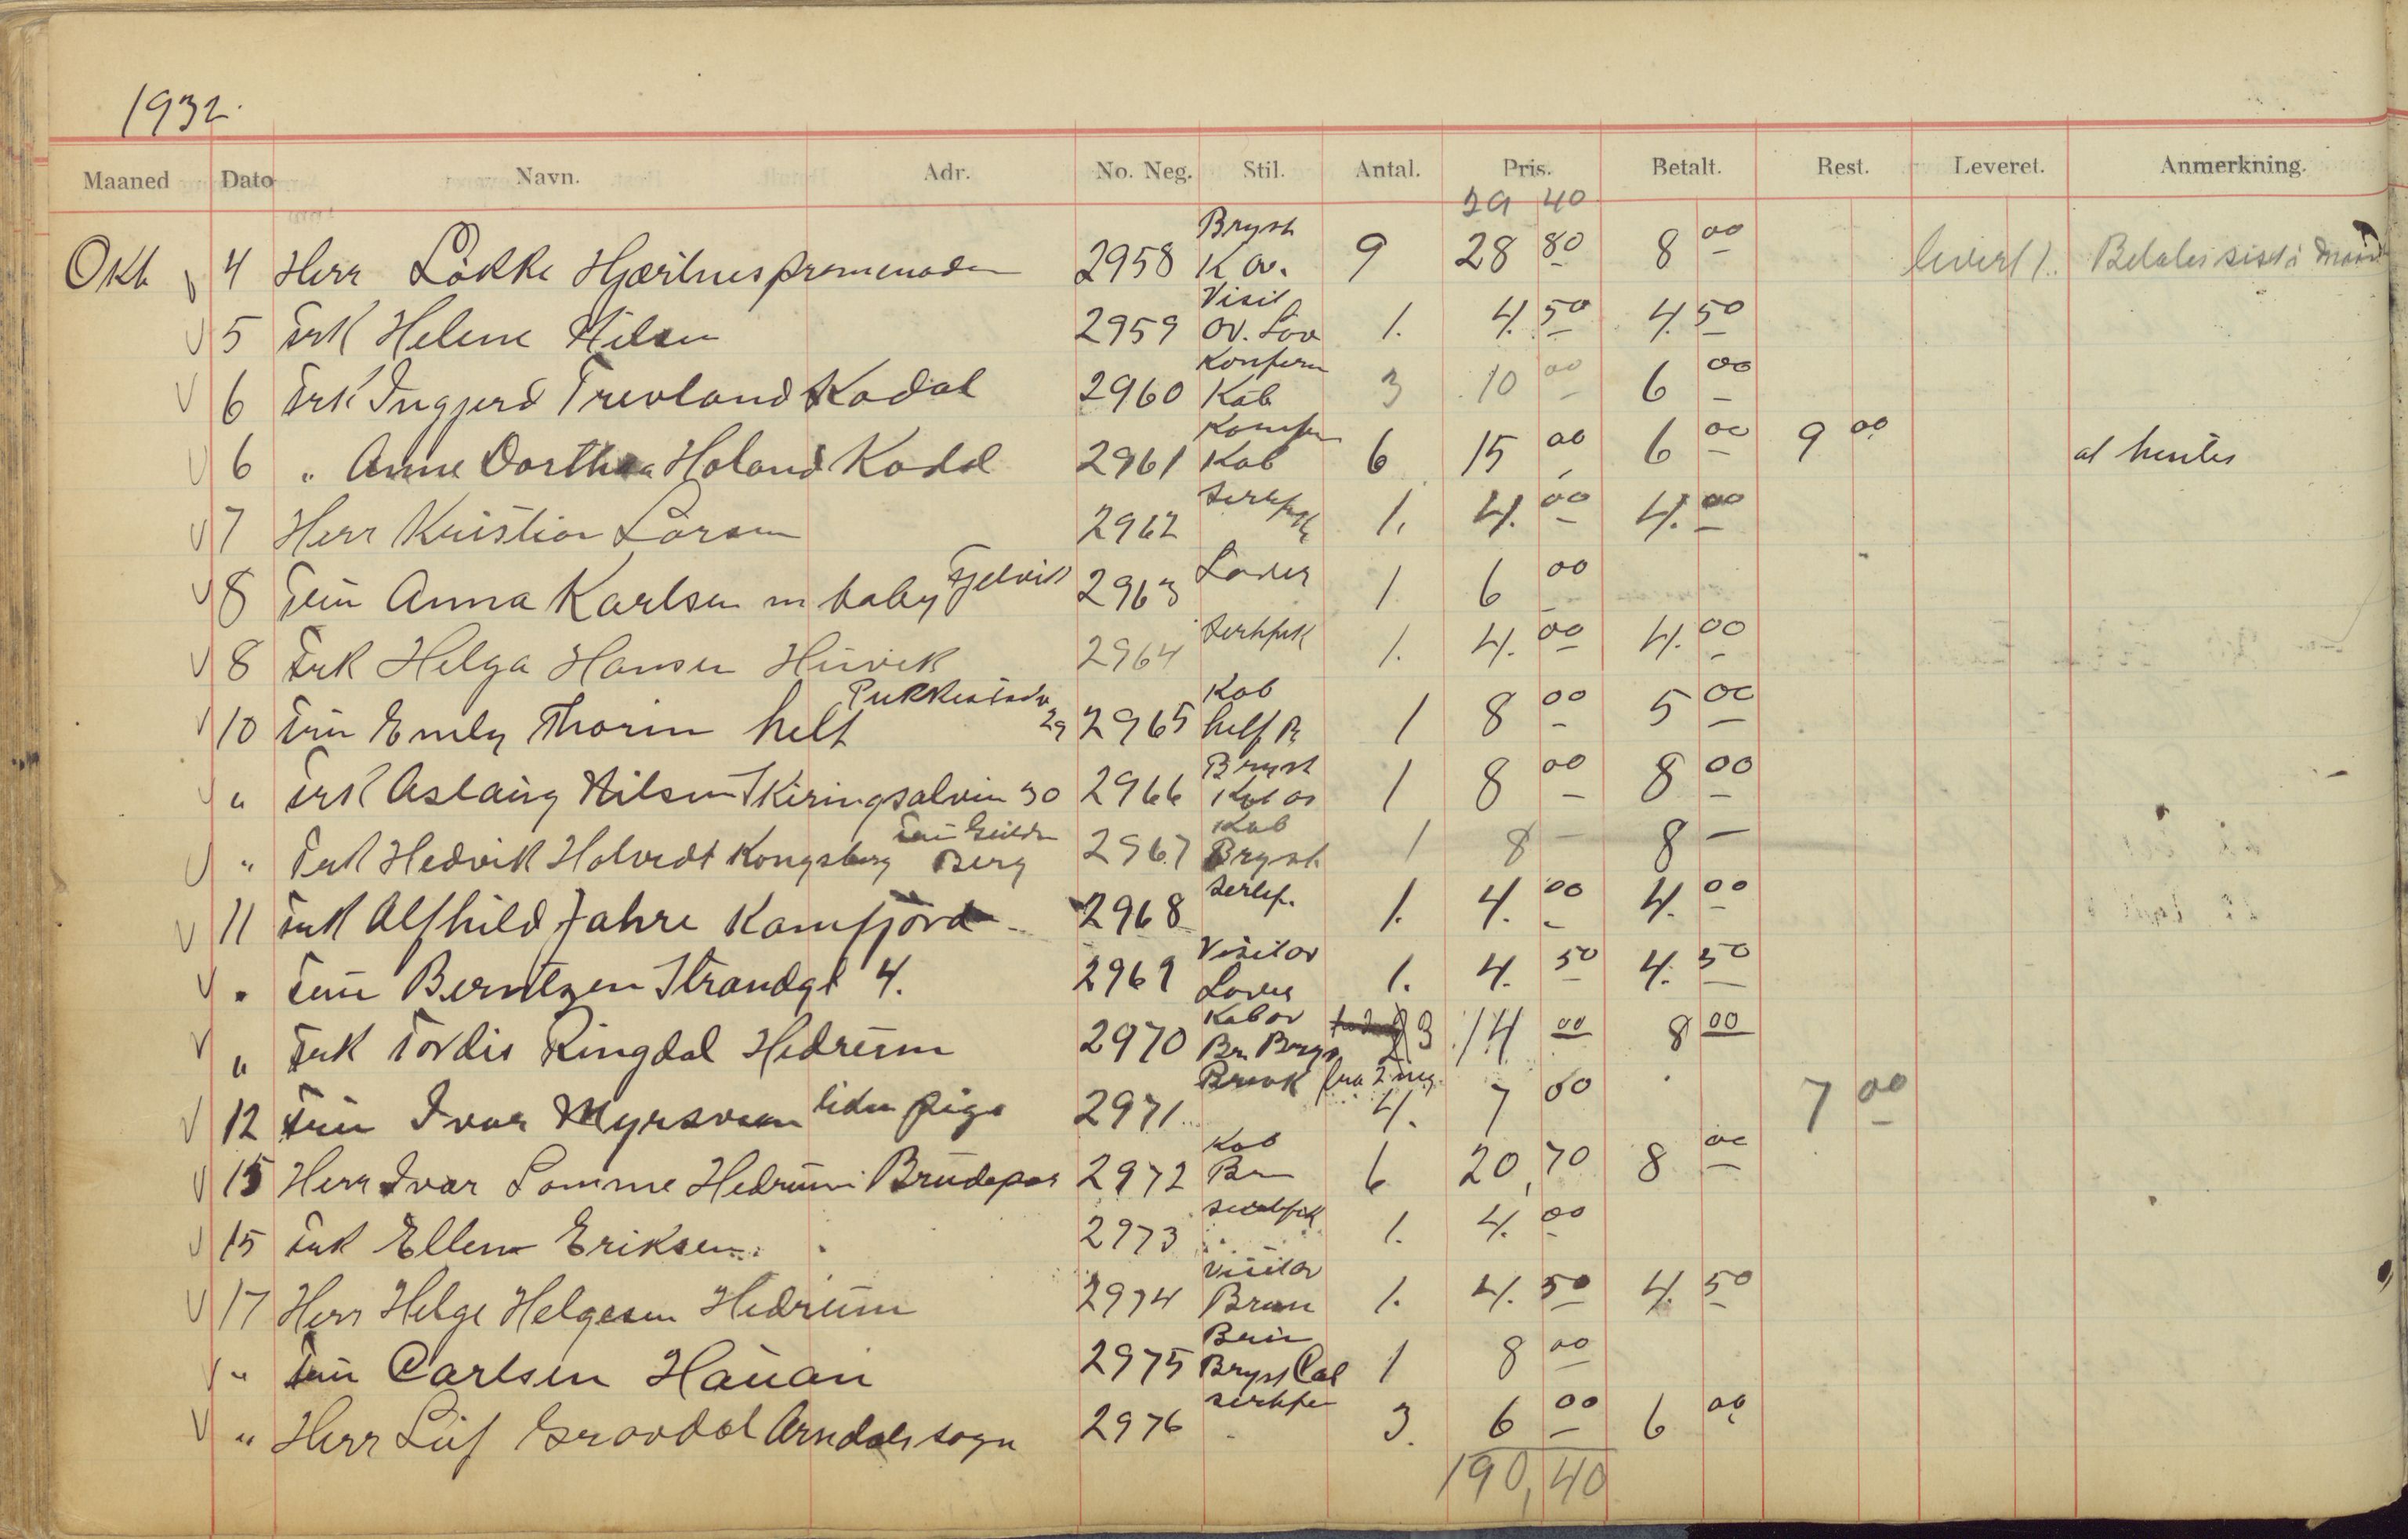 1932.
Maaned Dato Navn. Adr. No. Neg. Stil. Antal. Pris. Betalt. Rest. Leveret. Anmerkning.
29 40
Okt V 4 Herr Løkke Hjærtnespromenaden 2958 Bryst K ov. 9 28 80 8 00 levert Betales sist i Maaned
V 5 Frk Helene Nilsen 2959 Visit ov. Lov 1. 4. 50 4. 50
V 6 Frk Ingjerd Trevland Kodal 2960 Konferm Kab 3 10 00 6 00
V 6 " Anne Dorthea Holand Kodal 2961 Konfm Kab 6 15 00 6 00 9 00 at hentes
V 7 Herr Kristian Larsen 2962 1. 4. 00 4. 00
V 8 Fru Anna Karlsen m baby Fjelvik 2963 Laver 1 6 00
V 8 Frk Helga Hansen 2964 Sertfik 1. 4. 00 4. 00
V 10 Fru Emely Thorin helt 29 2965 Kab helf 1 8 00 5 00
V " Frk Aslaug Nilsen Skiringsalvein 30 2966 Bryst 1 8 00 8 00
V " Frk Hedvik Holvedt Kongsberg Berg 2967 Kab Bryst 1 8 — 8 —
V 11 Frk Alfhild Jahre Kamfjord 2968 Sertf. 1. 4. 00 4. 00
V " Fru Berntzen Strandgt 4. 2969 Visit ov Laver 1. 4. 50 4. 50
V " Frk Tordis Ringdal Hedrum 2970 Kab ov Br. Bryst 3 14 00 8 00
V 12 Fru Ivar Myrsveen liden pige 2971 fra 2 neg. 4. 7 00 7 00
V 15 Herr Ivar Lomme Hedrum Brudepar 2972 Kab Br 6 20,70 8 00
V 15 Frk Ellen Eriksen 2973 1. 4. 00
V 17 Herr Helge Helgesen Hedrum 2974 Visit ov Brun 1. 4. 50 4. 50
V " Fru Carlsen Hauan 2975 Brun Bryst Cab 1 8 00
V " Herr Leif Gravdal Arndals sogn 2976 3. 6 00 6 00
190,40